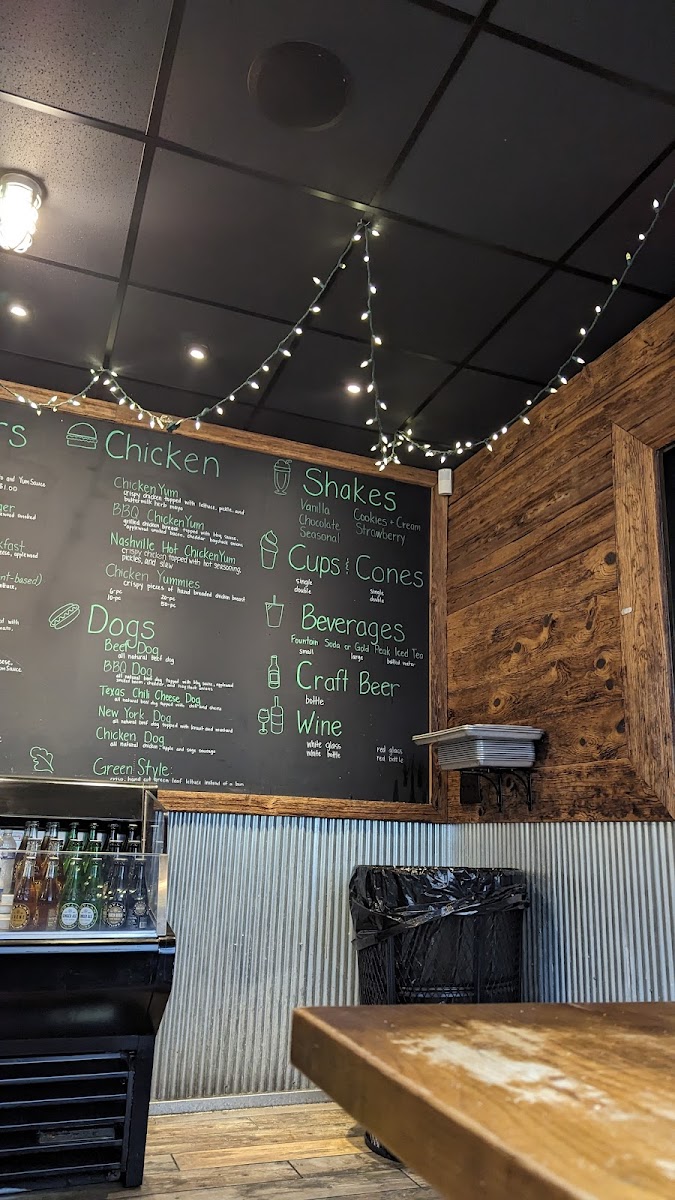 rs
and YumSauce
$1.00
ger
smoked
kfast
sauce, applewood
ant-based)
Chicken
ChickenYum
crispy chicken topped with lettuce, pickle, and
buttermilk herb mayo
BBQ ChickenYum
grilled chicken breast topped with bbq sauce,
applewood smoked bacon, cheddar,
Nashville Hot ChickenYum
crispy chicken topped with hot seasoning,
pickles, and slaw
Chicken Yummies
crispy pieces of hand breaded chicken breast
6-pc 20-pc
10-pc 50-pc
Dogs
Beef Dog
all natural beef dog
BBQ Dog
all natural beef dog topped with bbq sauce, applewood
smoked bacon, cheddar, and
Texas Chili Cheese Dog
all natural beef dog topped with chili and cheese
New York Dog
all natural beef dog topped with kraut and mustard
Chicken Dog
all natural chicken, apple and sage sausage
Green Style
hand cut green leaf lettuce instead of a bun
Shakes
Vanilla Cookies + Cream
Chocolate Strawberry
Seasonal
Cups & Cones
single single
double double
Beverages
Fountain Soda or Gold Peak Iced Tea
small large bottled water
Craft Beer
bottle
Wine
white glass red glass
white bottle red bottle